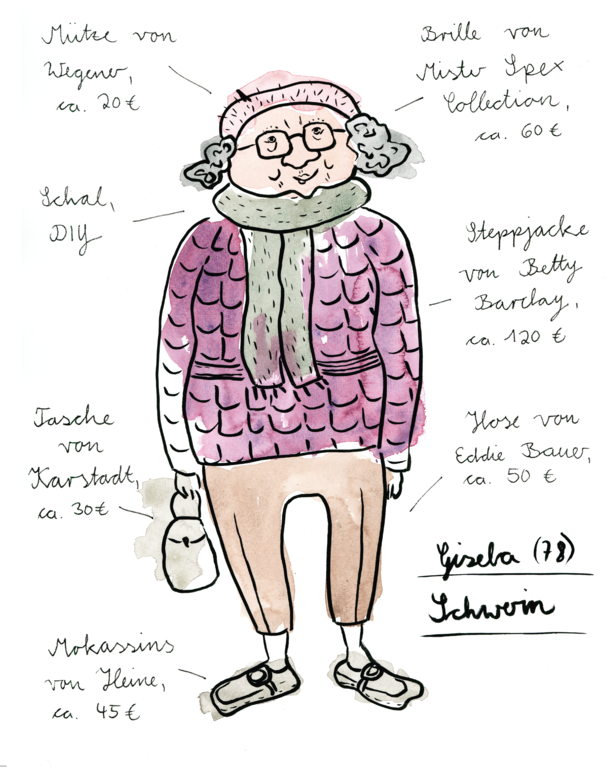 Mütze von
Wegener,
ca. 20 €
Brille von
Mister Spex
Collection,
ca. 60 €
Schal,
DIY
Steppjacke
von Betty
Barclay,
ca. 120 €
Tasche
von
Karstadt,
ca. 30 €
Hose von
Eddie Bauer,
ca. 50 €
Gisela (78)
Schwerin
Mokassins
von Heine,
ca. 45 €